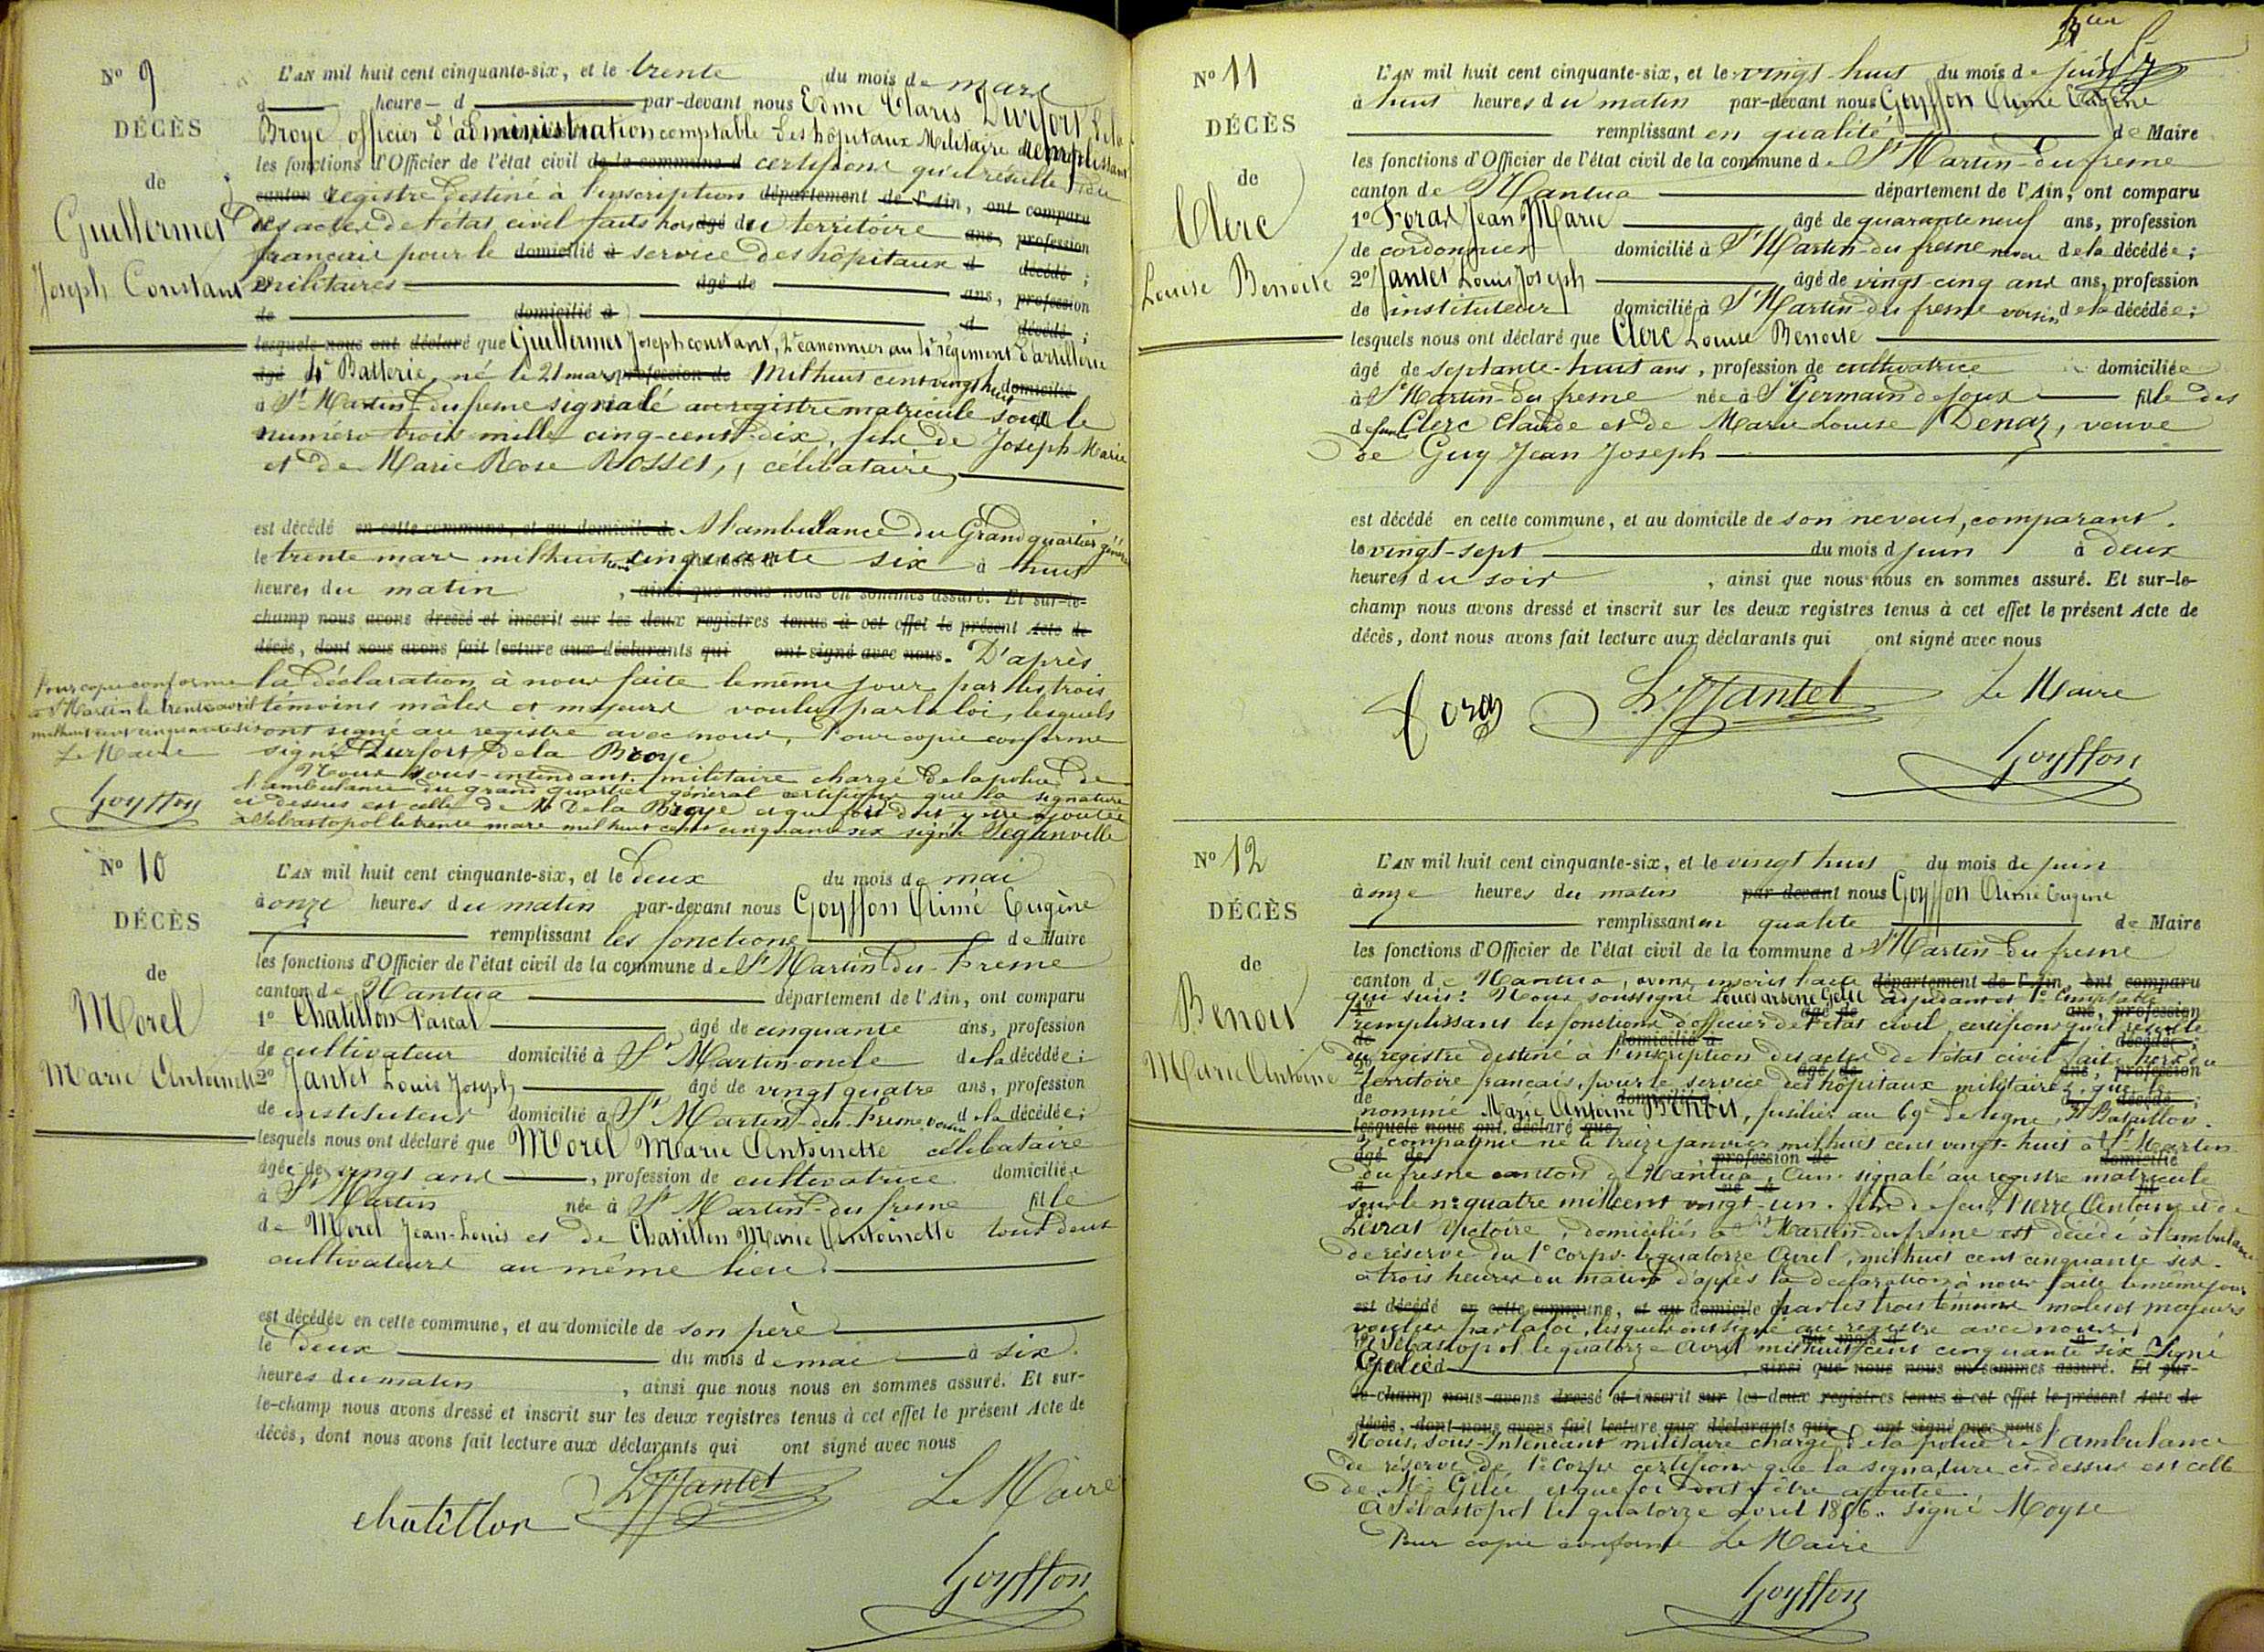 N° 9
DÉCÈS
de
Guillermet
Joseph Constant
L'AN mil huit cent cinquante-six, et le trente du mois de mars
à heure d par-devant nous Edme Claris Durfort de la
Broye officier d'administration comptable des hôpitaux Militaire remplissant
les fonctions d'Officier de l'état civil de la commune d certifions qu'il résulte du
canton registre destiné à l'inscription département de l'Ain, ont comparu
des actes de l'état civil faits hors âgé du territoire ans, profession
français pour le domicilié à service des hôpitaux d décédé ;
2° militaires âgé de ans, profession
de domicilié à d décédé ;
lesquels nous ont déclaré que Guillermet Joseph constant, 2e canonnier au 4e régiment d'artillerie
âgé 4e Batterie, né le 21 mars profession de Mil huit cent vingt huit domicilié
à St Martin-du fresne signalé au registre matricule sous le
numéro trois mille cinq-cent-dix, fils de Joseph Marie
et de Marie Rose ROSSET, célibataire
est décédé en cette commune, et au domicile de A l'ambulance du Grand quartier général
le trente mars mil huit cent cinquante six à huit
heures du matin , ainsi que nous nous en sommes assuré. Et sur-le-
champ nous avons dressé et inscrit sur les deux registres tenus à cet effet le présent Acte de
décès, dont nous avons fait lecture aux déclarants qui ont signé avec nous. D'après
la déclaration à nous faite le même jour par les trois
témoins mâles et majeurs voulus par la loi, lesquels
ont signé au registre avec nous, Pour copie conforme
signé Durfort de la Broye
Nous sous-intendant militaire chargé de la police de
l'ambulance du grand quartier général certifions que la signature
ci dessus est celle de Mr De la Broye et que foi doit y être ajoutée
a Sébastopol le trente mars mil huit cent cinquante six signé Seganville
Pour copie conforme
a St Martin le trente avril
mil huit cent cinquante six
Le Maire
Goyffon
N° 10
DÉCÈS
de
Morel
Marie Antoinette
L'AN mil huit cent cinquante-six, et le deux du mois de mai
à onze heures du matin par-devant nous Goyffon Aimé Eugène
remplissant les fonctions de Maire
les fonctions d'Officier de l'état civil de la commune de St Martin du-Fresne
canton de Nantua département de l'Ain, ont comparu
1° Chatillon Pascal âgé de cinquante ans, profession
de cultivateur domicilié à St Martin oncle de la décédée ;
2° Jantet Louis Joseph âgé de vingt quatre ans, profession
de instituteur domicilié à St Martin-du-Fresne, voisin de la décédée ;
lesquels nous ont déclaré que Morel Marie Antoinette célibataire
âgée de vingt ans , profession de cultivatrice domiciliée
à St Martin née à St Martin-du fresne fille
de Morel Jean-Louis et de Chatillon Marie Antoinette tout deux
cultivateurs au même lieu
est décédée en cette commune, et au domicile de son père
le deux du mois de mai à six
heures du matin , ainsi que nous nous en sommes assuré. Et sur-
le-champ nous avons dressé et inscrit sur les deux registres tenus à cet effet le présent Acte de
décès, dont nous avons fait lecture aux déclarants qui ont signé avec nous
chatillon LJ Jantet Le Maire
Goyffon
N° 11
DÉCÈS
de
Clerc
Louise Benoite
L'AN mil huit cent cinquante-six, et le vingt huit du mois de juin
à huit heures du matin par-devant nous Goyffon Aimé Eugène
remplissant en qualité de Maire
les fonctions d'Officier de l'état civil de la commune de St Martin-du fresne
canton de Nantua département de l'Ain, ont comparu
1° Foras Jean Marie âgé de quarante neuf ans, profession
de cordonnier domicilié à St Martin-du fresne neveu de la décédée ;
2° Jantet Louis Joseph âgé de vingt-cinq ans ans, profession
de instituteur domicilié à St Martin-du fresne voisin de la décédée ;
lesquels nous ont déclaré que Clerc Louise Benoite
âgé de septante-huit ans, profession de cultivatrice domiciliée
à St Martin-du fresne née à St Germain de Joux fille des
défunts Clerc Claude et de Marie Louise Denaz, veuve
de Guy Jean Joseph
est décédé en cette commune, et au domicile de son neveu, comparant.
le vingt-sept du mois d juin à deux
heures du soir , ainsi que nous nous en sommes assuré. Et sur-le-
champ nous avons dressé et inscrit sur les deux registres tenus à cet effet le présent Acte de
décès, dont nous avons fait lecture aux déclarants qui ont signé avec nous
Foras LJ Jantet Le Maire
Goyffon
N° 12
DÉCÈS
de
Benoit
Marie Antoine
L'AN mil huit cent cinquante-six, et le vingt huit du mois de juin
à onze heures du matin par-devant nous Goyffon Aimé Eugène
remplissant en qualité de Maire
les fonctions d'Officier de l'état civil de la commune de St Martin-du fresne
canton de Nantua, avons inscrit l'acte département de l'Ain, ont comparu
qui suit : Nous soussigné Louis arsene Gelié adjudant et 1er Comptable
1° âgé de ans, profession
remplissant les fonctions d'officier de l'état civil, certifions qu'il résulte
de domicilié à d décédé ;
du registre destiné à l'inscription des actes de l'état civil faits hors du
2° âgé de ans, profession
territoire français, pour le service des hôpitaux militaires, que le
de domicilié à d décédé ;
nommé Marie Antoine BENOIT, fusilier au 69e de ligne, Bataillon.
lesquels nous ont déclaré que
compagnie né le treize janvier mil huit cent vingt-huit à St Martin
âgé de profession de domicilié
du fresne canton de Nantua, Ain. signalé au registre matricule
à né à fil
sous le n° quatre mille cent vingt-un. fils de feu Pierre Antoine et de
Leyrat Victoire, domiciliés à St Martin-du fresne est décédé à l'ambulance
de réserve du 1er Corps le quatorze Avril, mil huit cent cinquante six.
a trois heures du matin d'après la déclaration à nous faite le même jour
est décédé en cette commune, et au domicile d par les trois témoins mâles et majeurs
voulus par la loi, lesquels ont signé au registre avec nous,
du mois d à
A Sébastopol le quatorze Avril mil huit cent cinquante six Signé
Gelié , ainsi que nous nous en sommes assuré. Et sur-
le-champ nous avons dressé et inscrit sur les deux registres tenus à cet effet le présent Acte de
décès, dont nous avons fait lecture aux déclarants qui ont signé avec nous
Nous, sous-Intendant militaire chargé de la police de l'ambulance
de réserve de 1er Corps certifions que la signature ci-dessus est celle
de Mr Gelié et que foi doit y être ajoutée.
A Sébastopol le quatorze avril 1856. signé Moyse
Pour copie conforme Le Maire
Goyffon